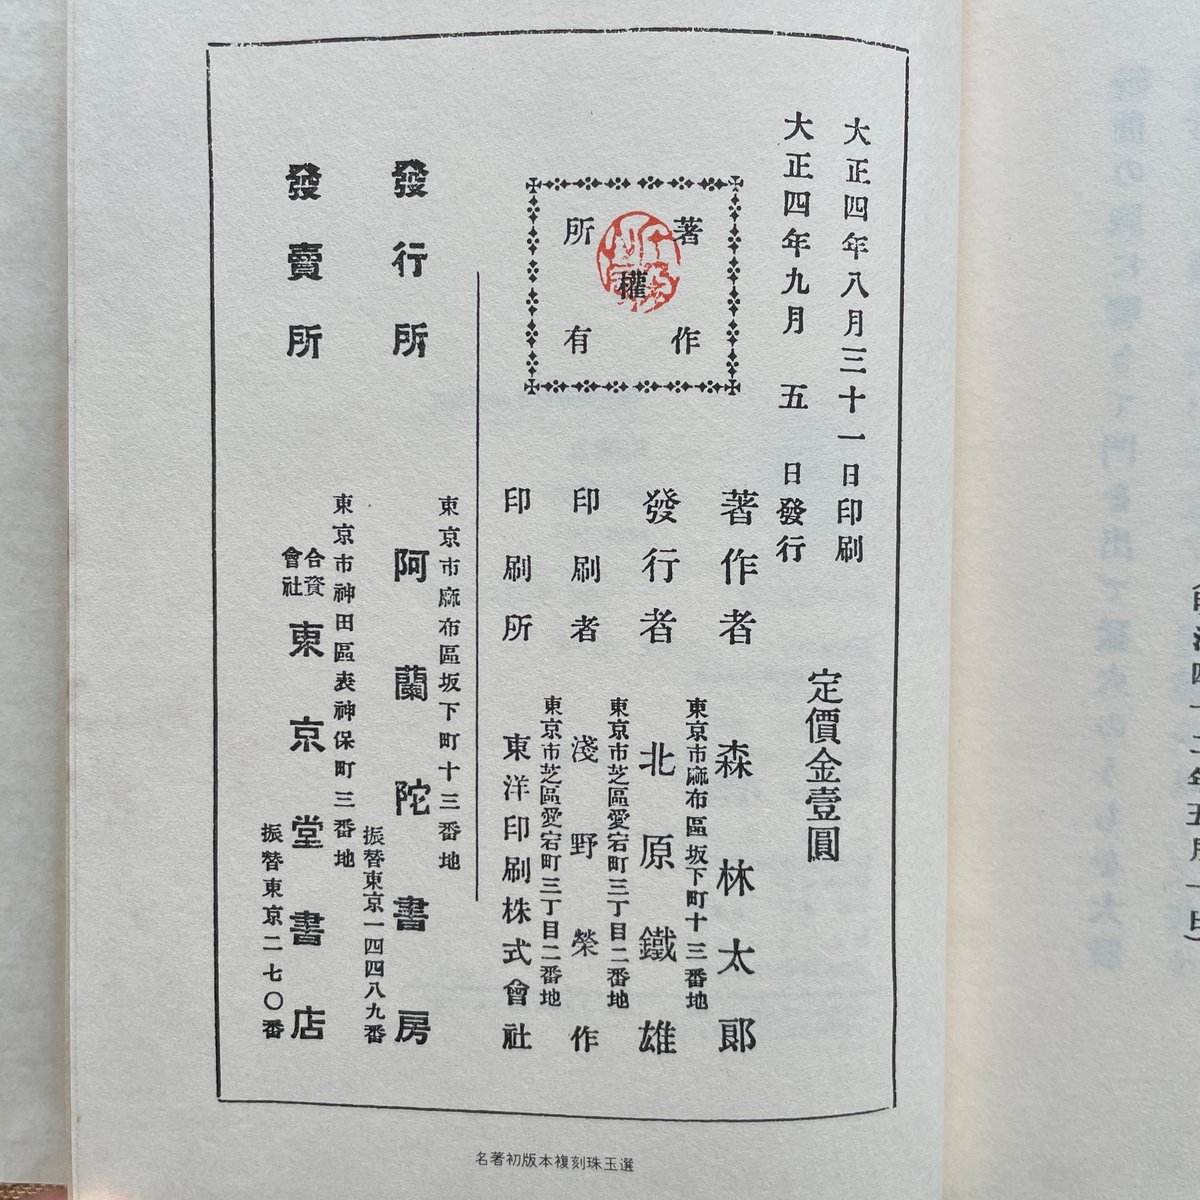 大正四年八月三十一日印刷
大正四年九月五日發行
定價金壹圓
著作
權
所有
著作者 森林太郎
東京市麻布區坂下町十三番地
發行者 北原鐵雄
東京市芝區愛宕町三丁目二番地
印刷者 淺野榮作
東京市芝區愛宕町三丁目二番地
印刷所 東洋印刷株式會社
東京市麻布區坂下町十三番地
發行所 阿蘭陀書房
振替東京一四四八九番
東京市神田區表神保町三番地
發賣所 合資會社 東京堂書店
振替東京二七〇番
名著初版本複刻珠玉選